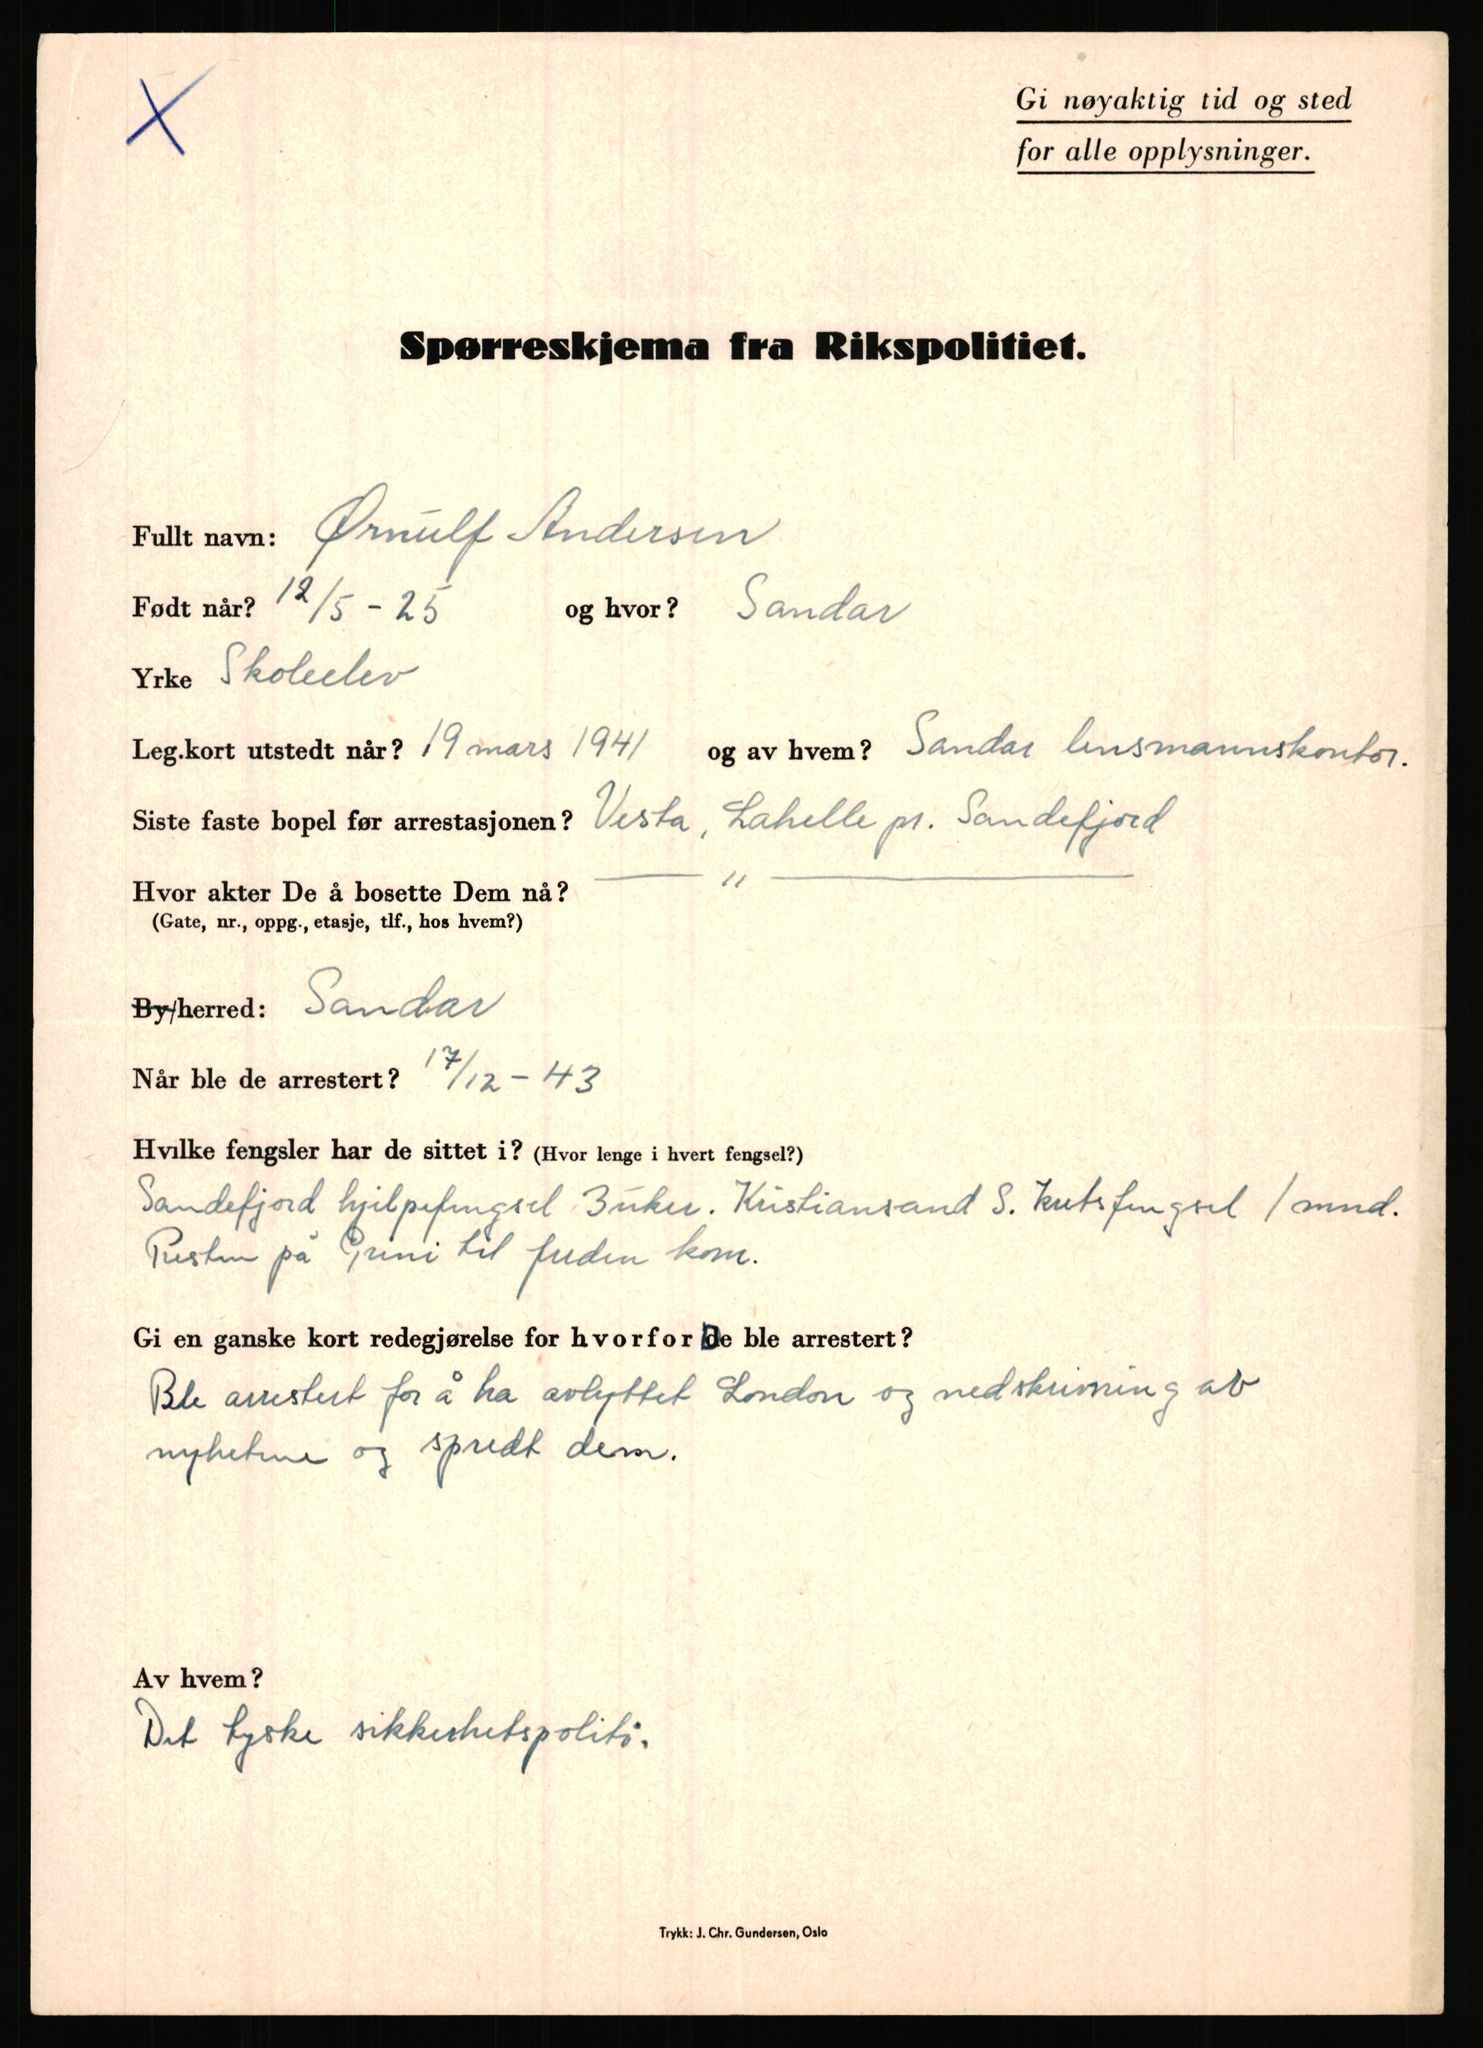 Gi nøyaktig tid og sted
for alle opplysninger.
Spørreskjema fra Rikspolitiet.
Fullt navn: Ørnulf Andersen
Født når? 12/5 - 25 og hvor? Sandar
Yrke Skoleelev
Leg.kort utstedt når? 19 mars 1941 og av hvem? Sandar lensmannskontor.
Siste faste bopel før arrestasjonen? Vesta, Lahelle pr. Sandefjord
Hvor akter De å bosette Dem nå? — " —
(Gate, nr., oppg., etasje, tlf., hos hvem?)
By/herred: Sandar
Når ble de arrestert? 17/12 - 43
Hvilke fengsler har de sittet i? (Hvor lenge i hvert fengsel?)
Sandefjord hjelpefengsel 3 uker. Kristiansand S. kretsfengsel 1 mnd.
Resten på Grini til freden kom.
Gi en ganske kort redegjørelse for hvorfor De ble arrestert?
Ble arrestert for å ha avlyttet London og nedskrivning av
nyhetene og spredt dem.
Av hvem?
Det tyske sikkerhetspoliti.
Trykk: J. Chr. Gundersen, Oslo